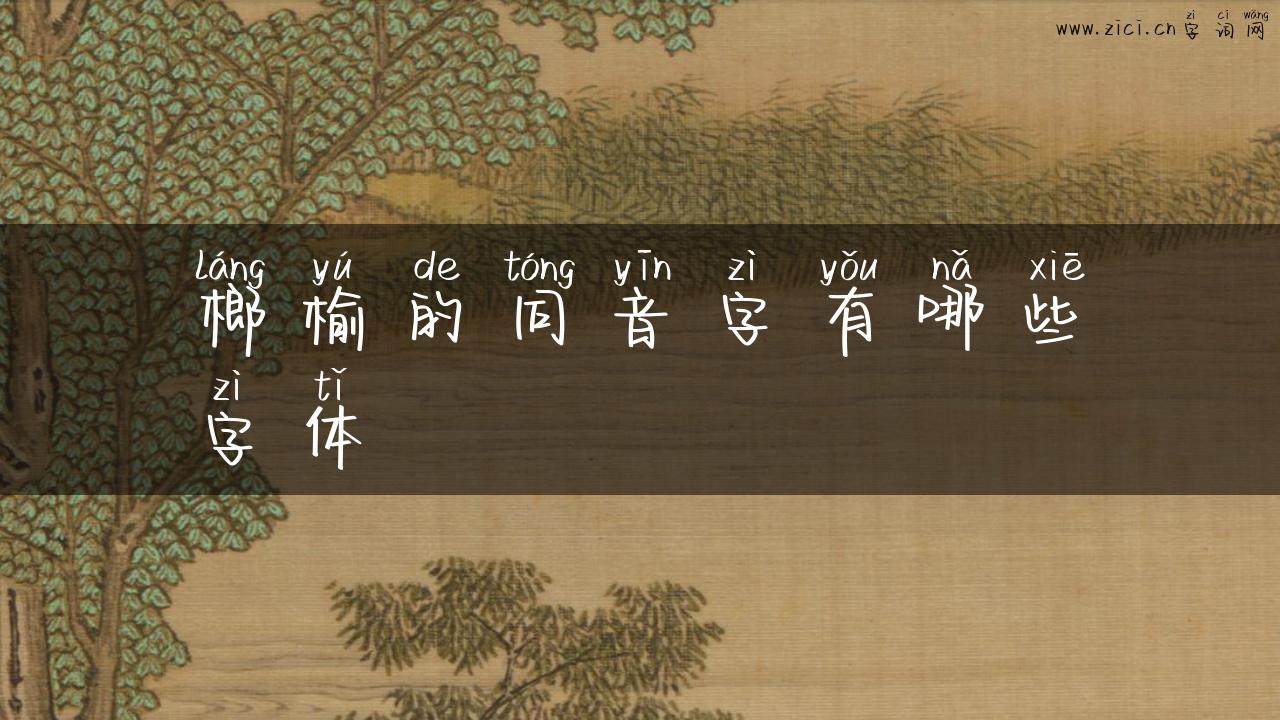 zì cí wǎng
www.zici.cn字词网
láng yú de tóng yīn zì yǒu nǎ xiē
榔榆的同音字有哪些
zì tǐ
字体